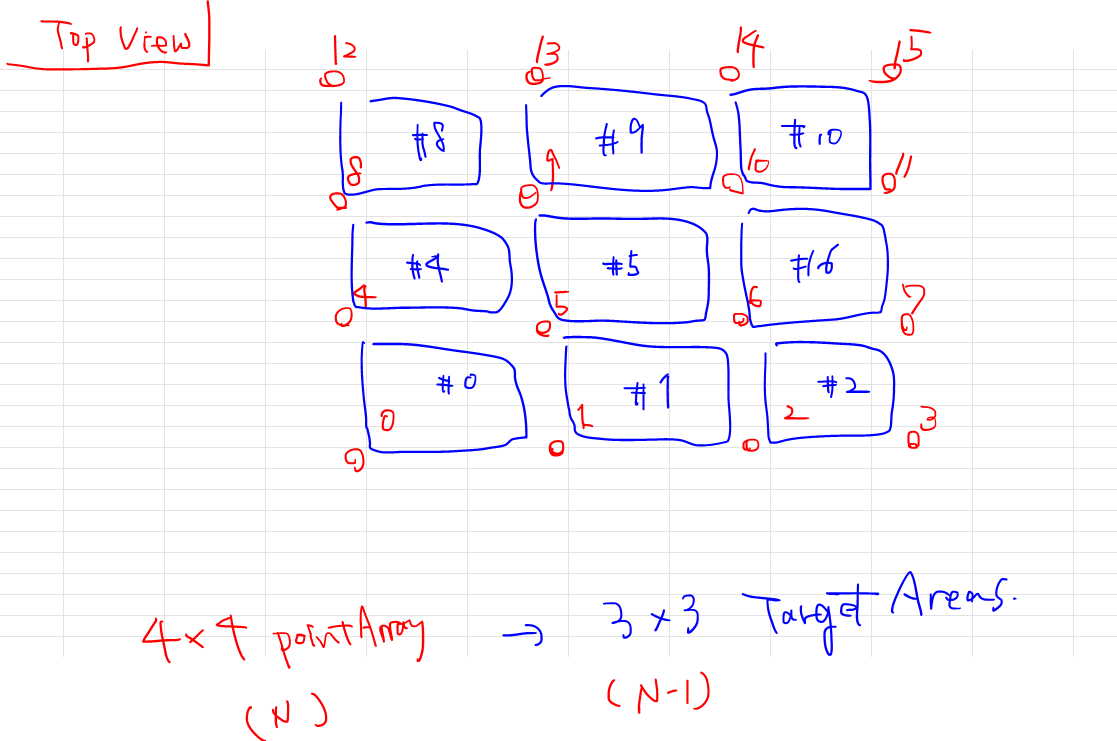 Top View
12 13 14 15
#8 #9 #10
8 9 10 11
#4 #5 #6
4 5 6 7
#0 #1 #2
0 1 2 3
4×4 pointArray → 3×3 Target Areas.
(N) (N-1)